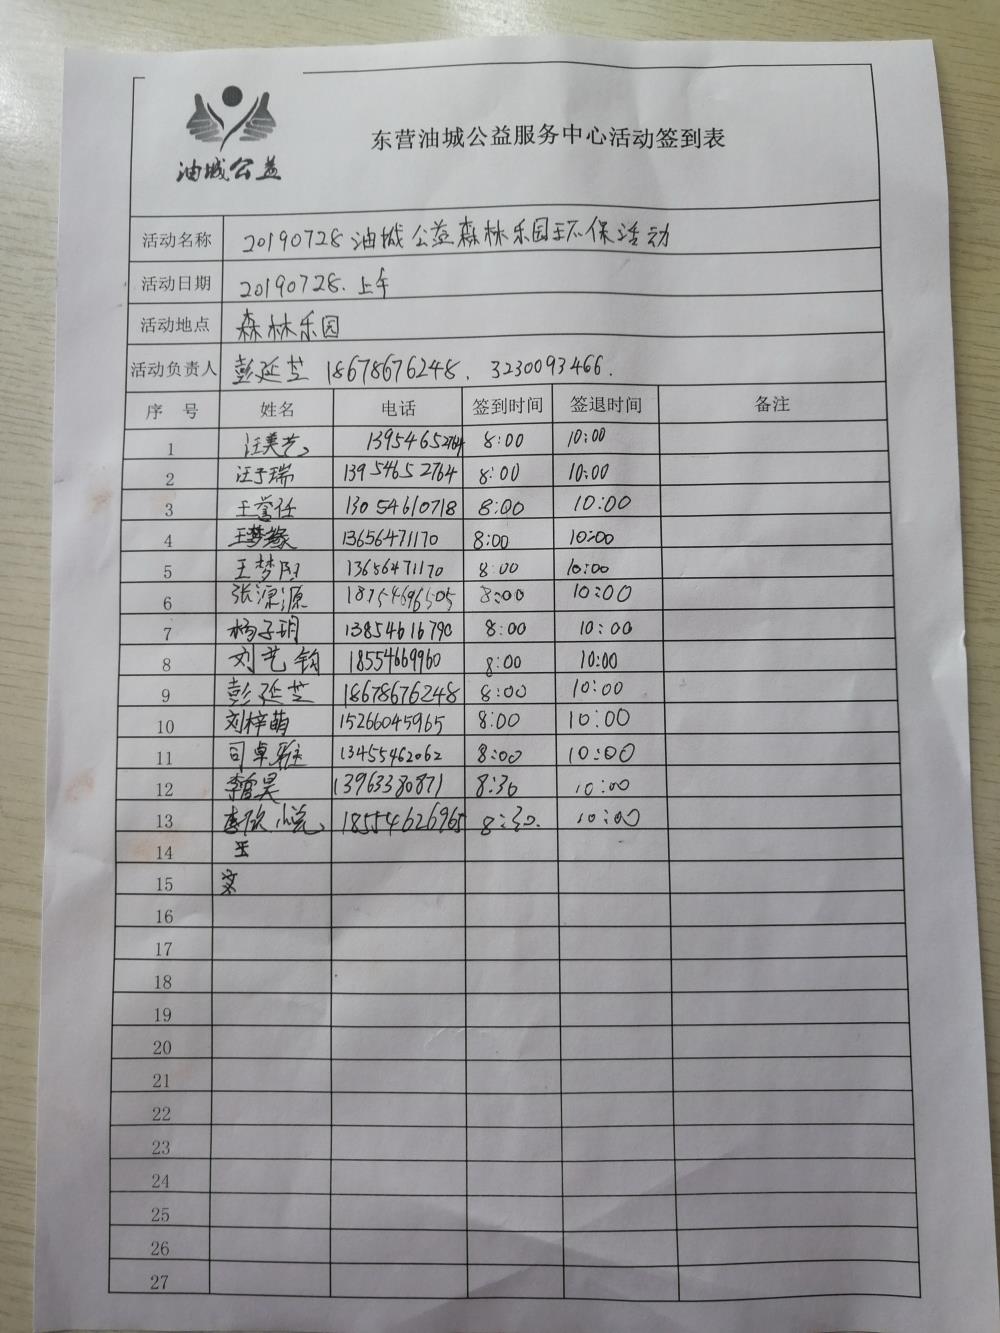 油城公益
东营油城公益服务中心活动签到表
活动名称 20190728油城公益森林乐园环保活动
活动日期 20190728.上午
活动地点 森林乐园
活动负责人 彭延芝 18678676248. 3230093466.
序号 姓名 电话 签到时间 签退时间 备注
1 汪美艺 13954652764 8:00 10:00
2 汪子瑞 13954652764 8:00 10:00
3 王誉任 13054610718 8:00 10:00
4 王梦 13656471170 8:00 10:00
5 王梦阳 13656471170 8:00 10:00
6 张源源 18754696505 8:00 10:00
7 杨子玥 13854616790 8:00 10:00
8 刘艺钧 18554669960 8:00 10:00
9 彭延芝 18678676248 8:00 10:00
10 刘梓萌 15266045965 8:00 10:00
11 司卓 13455462062 8:00 10:00
12 李曾昊 13963380871 8:30 10:00
13 李欣悦 18554626965 8:30. 10:00
14 王
15
16
17
18
19
20
21
22
23
24
25
26
27